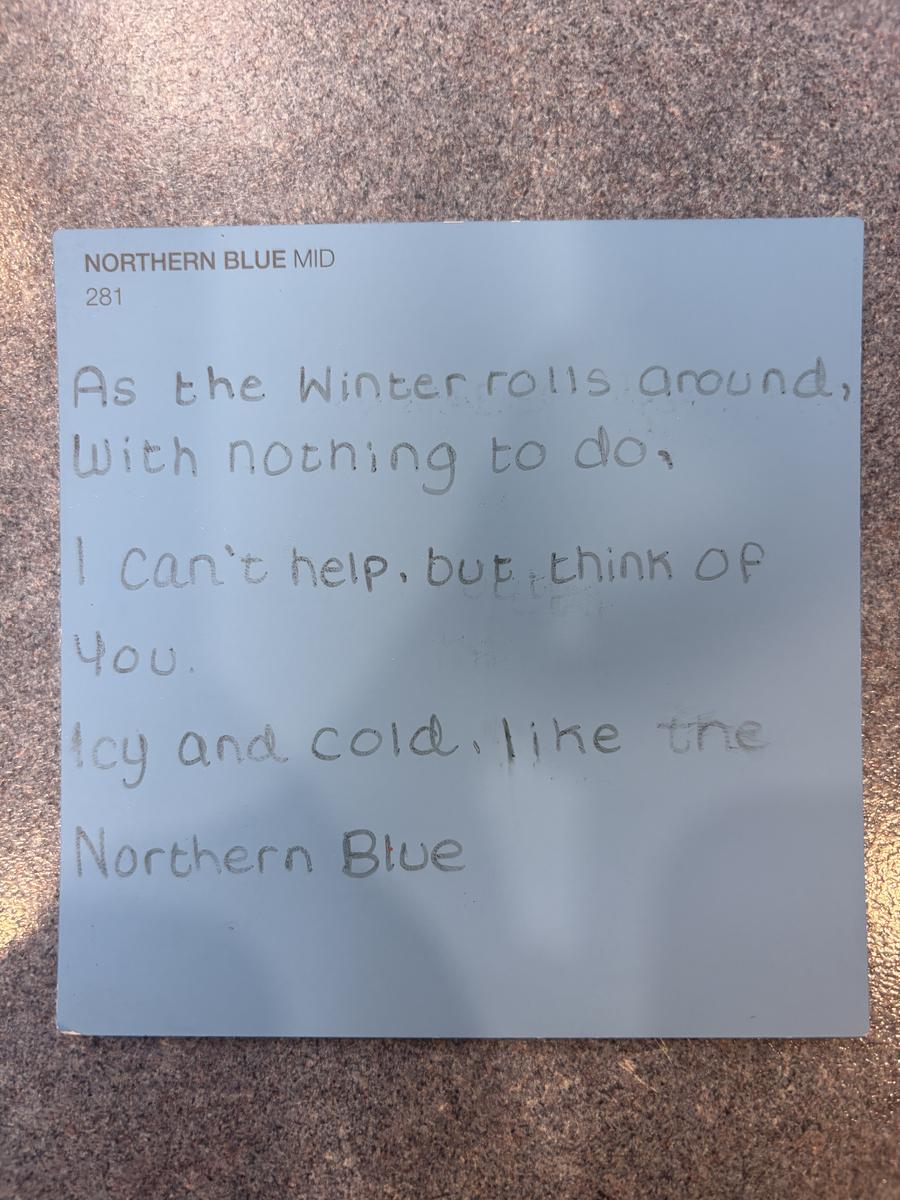 NORTHERN BLUE MID
281
As the Winter rolls around,
With nothing to do,
I can't help, but think of
You.
Icy and cold, like the
Northern Blue